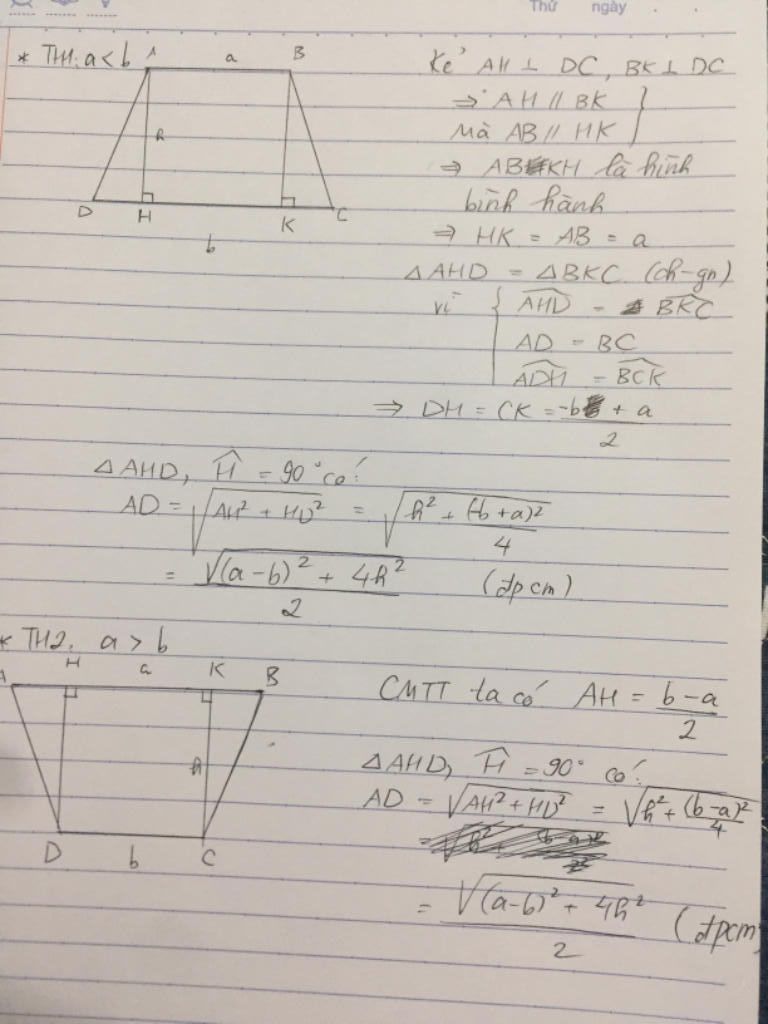 Thứ ngày
* TH1: a < b
A a B
h
D H K C
b
Kẻ AH ⊥ DC, BK ⊥ DC
⇒ AH // BK
Mà AB // HK
⇒ ABKH là hình
bình hành
⇒ HK = AB = a
△AHD = △BKC (ch-gn)
vì { \widehat{AHD} = \widehat{BKC}
AD = BC
\widehat{ADH} = \widehat{BCK}
⇒ DH = CK = \frac{-b + a}{2}
△AHD, \widehat{H} = 90° có:
AD = \sqrt{AH² + HD²} = \sqrt{h² + \frac{(-b+a)²}{4}}
= \frac{\sqrt{(a-b)² + 4h²}}{2} (đpcm)
* TH2: a > b
A H a K B
h
D b C
CMTT ta có AH = \frac{b-a}{2}
△AHD, \widehat{H} = 90° có:
AD = \sqrt{AH² + HD²} = \sqrt{h² + \frac{(b-a)²}{4}}
= \frac{\sqrt{(a-b)² + 4h²}}{2} (đpcm)